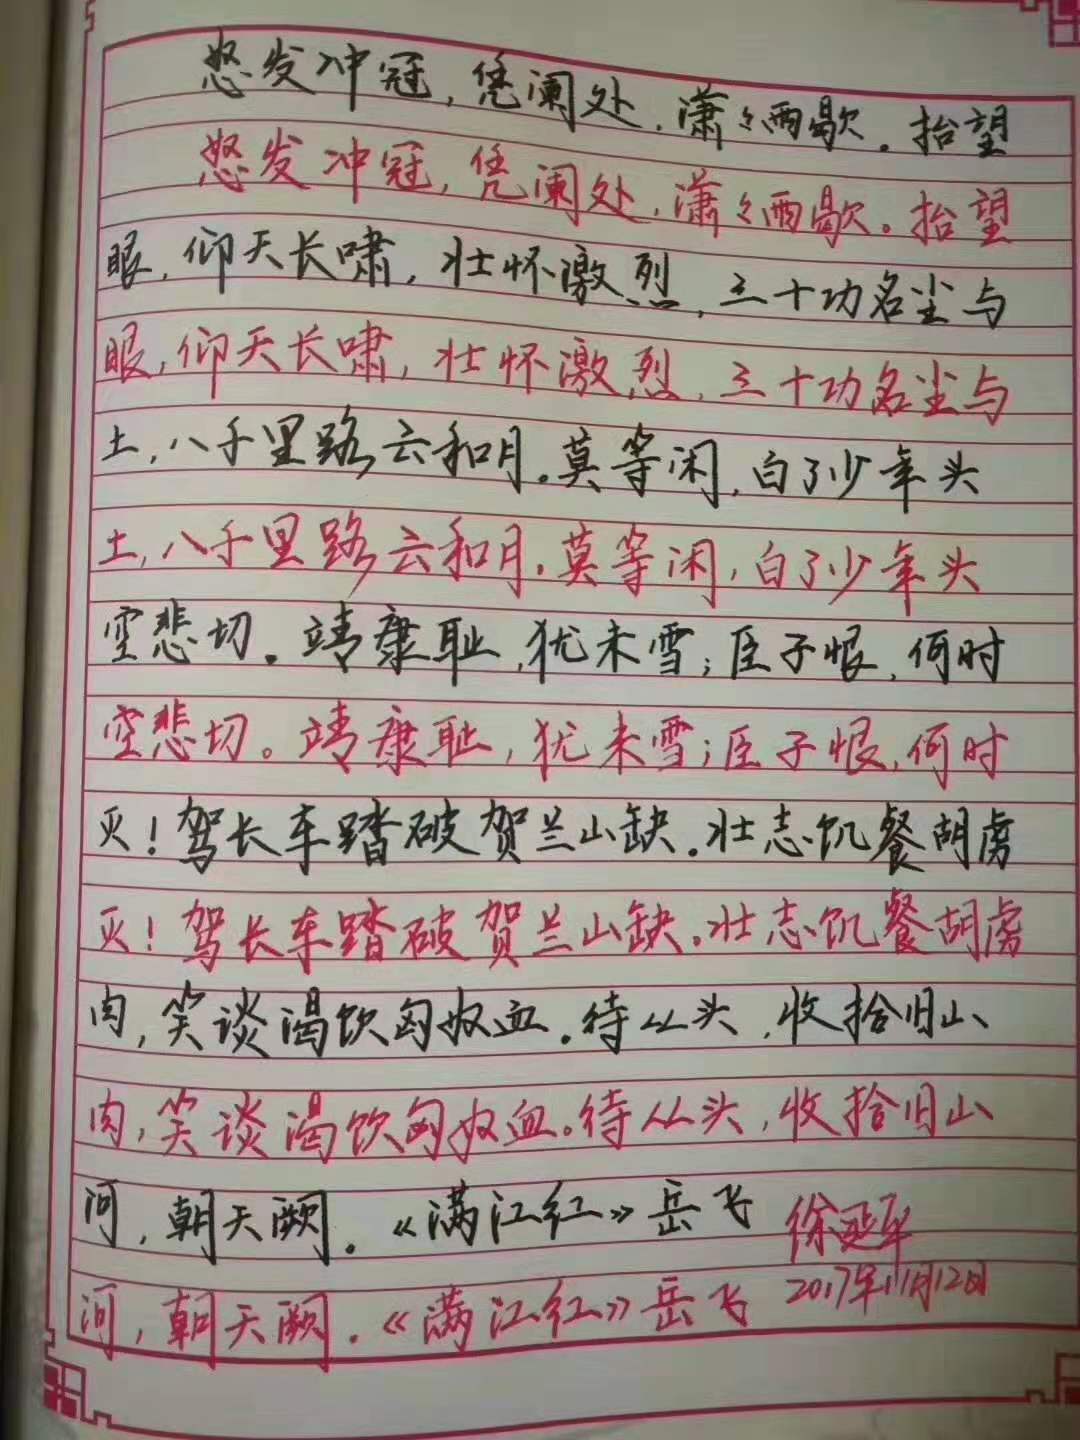 怒发冲冠,凭阑处,潇々雨歇。抬望
怒发冲冠,凭阑处,潇々雨歇。抬望
眼,仰天长啸,壮怀激烈,三十功名尘与
眼,仰天长啸,壮怀激烈,三十功名尘与
土,八千里路云和月。莫等闲,白了少年头
土,八千里路云和月。莫等闲,白了少年头
空悲切。靖康耻,犹未雪;臣子恨,何时
空悲切。靖康耻,犹未雪;臣子恨,何时
灭!驾长车踏破贺兰山缺。壮志饥餐胡虏
灭!驾长车踏破贺兰山缺。壮志饥餐胡虏
肉,笑谈渴饮匈奴血。待从头,收拾旧山
肉,笑谈渴饮匈奴血。待从头,收拾旧山
河,朝天阙。《满江红》岳飞 徐延军
河,朝天阙。《满江红》岳飞 2017年11月12日